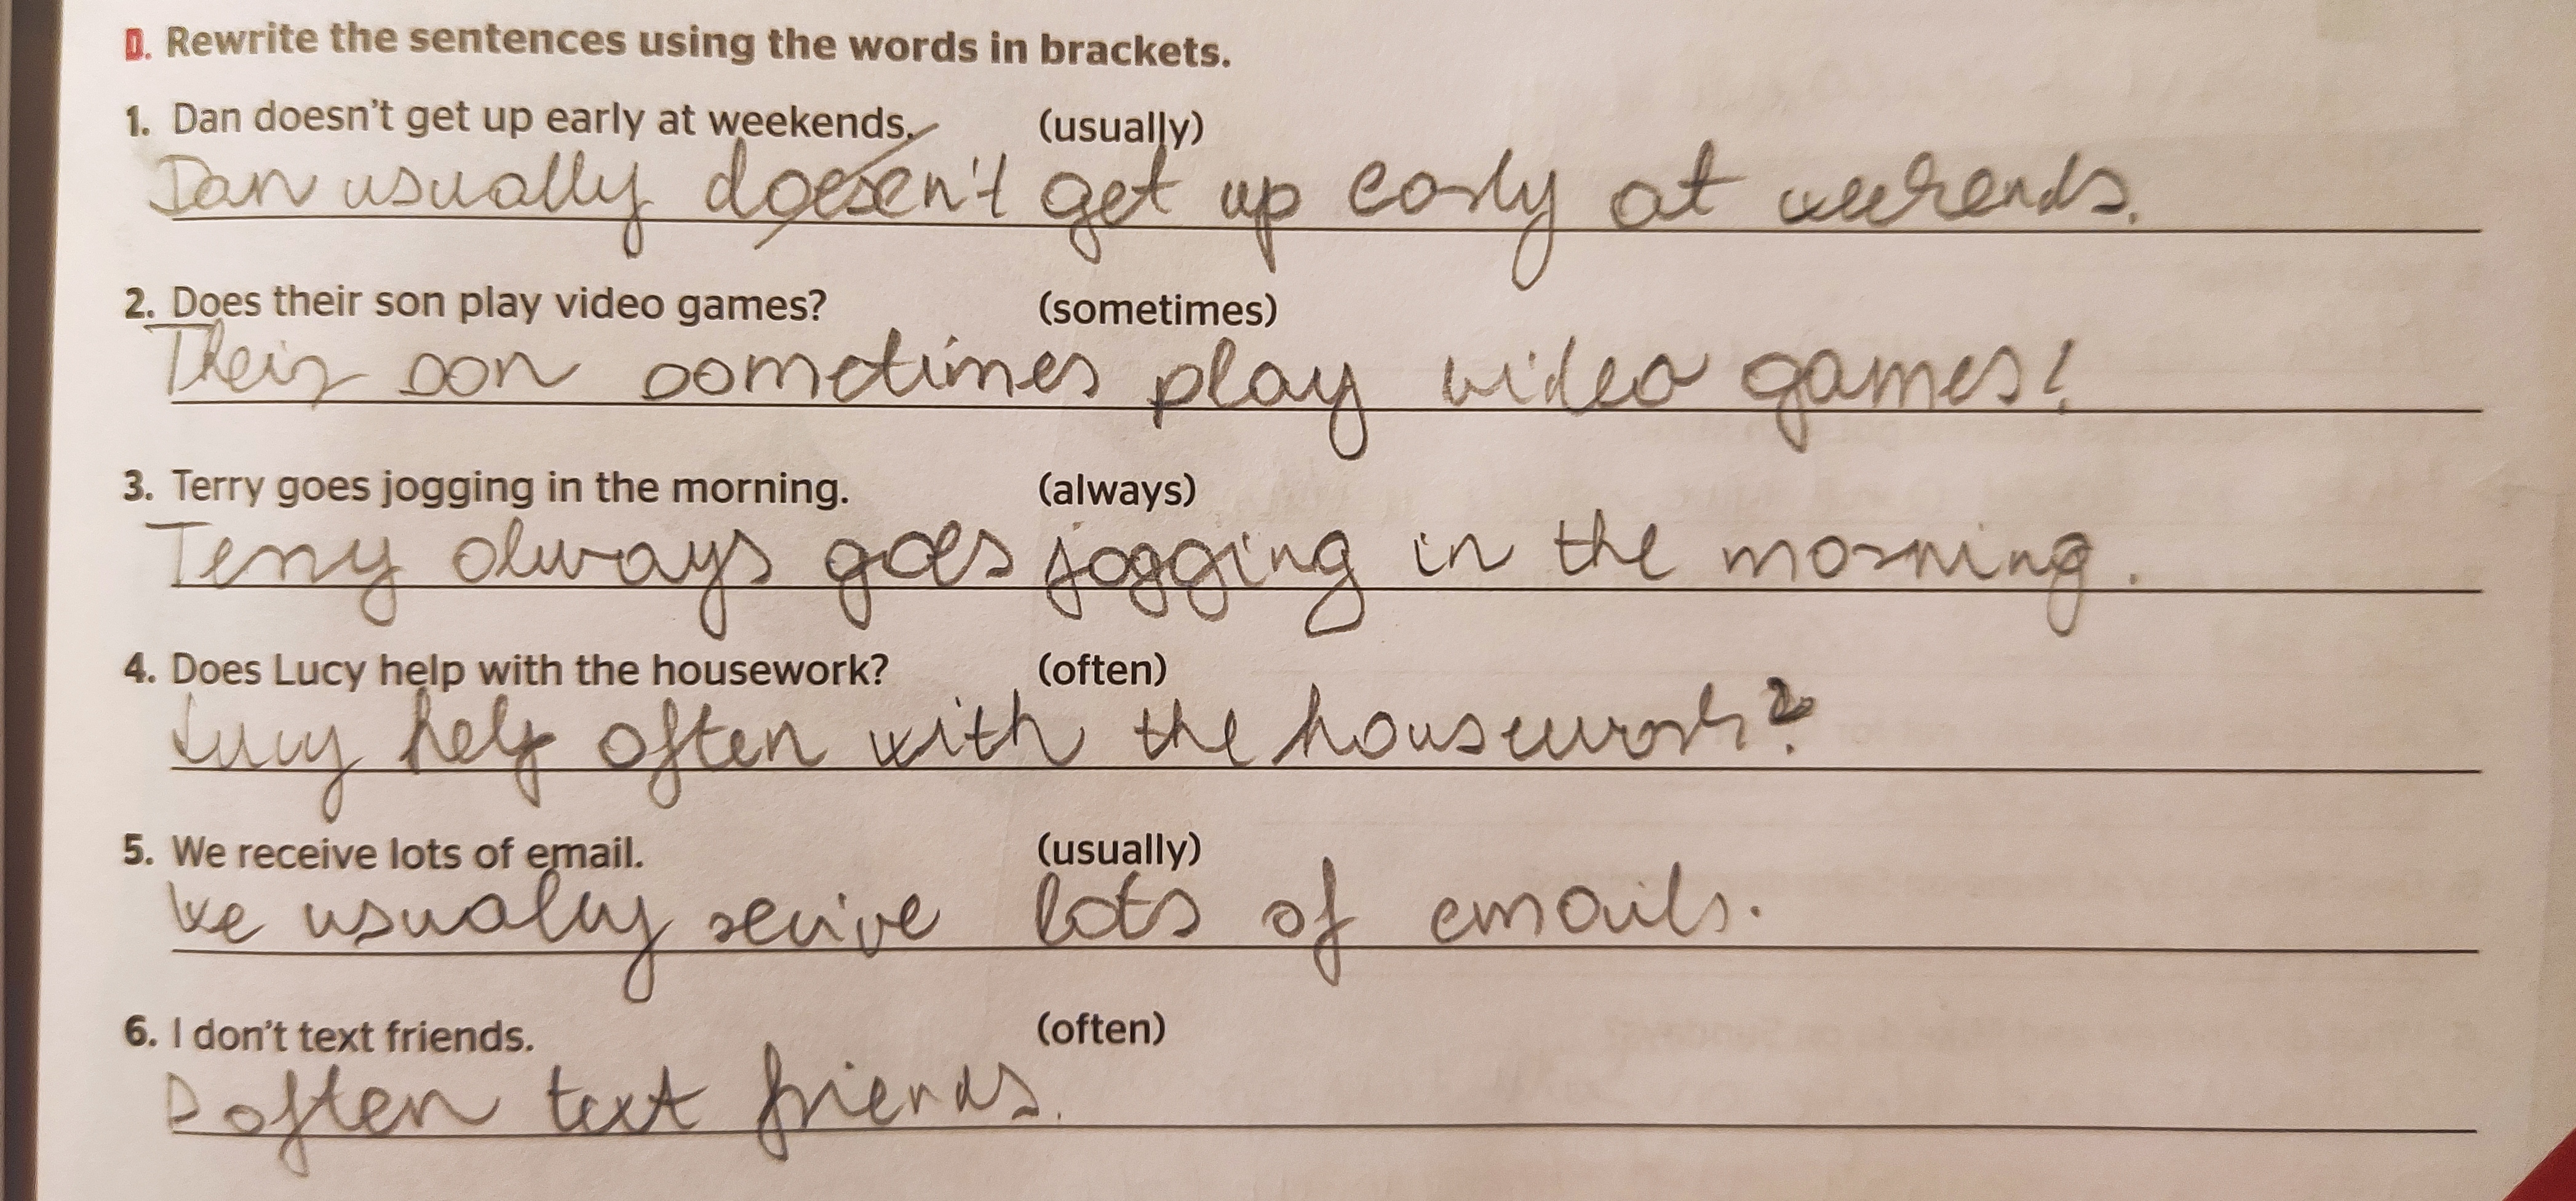 D. Rewrite the sentences using the words in brackets.
1. Dan doesn't get up early at weekends. (usually)
Dan usually doesen't get up early at weekends.
2. Does their son play video games? (sometimes)
Their son sometimes play video games?
3. Terry goes jogging in the morning. (always)
Terry always goes jogging in the morning.
4. Does Lucy help with the housework? (often)
Lucy help often with the housework?
5. We receive lots of email. (usually)
We usually recive lots of emails.
6. I don't text friends. (often)
I often text friends.